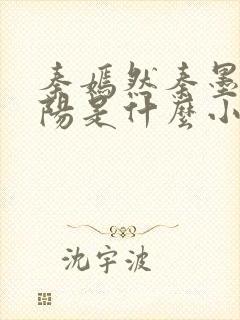 秦嫣然秦墨
陽是什麼小
沈宇波